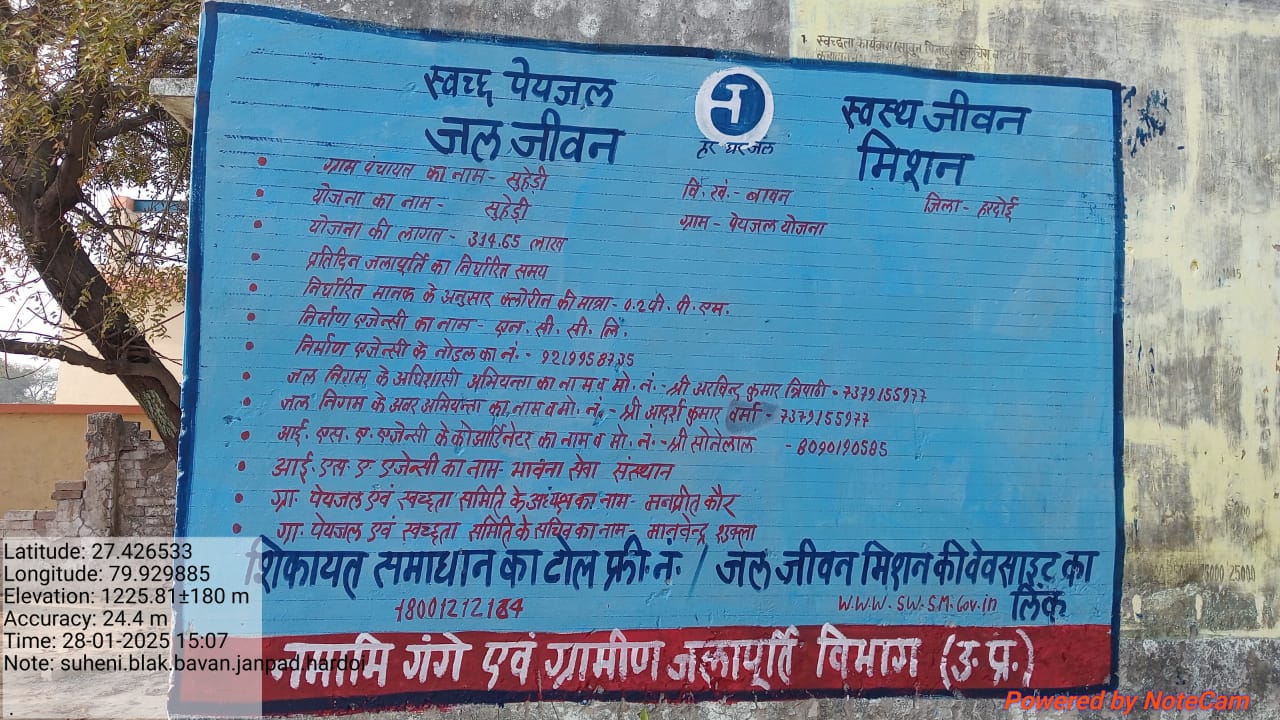 स्वच्छ पेयजल
जल जीवन
हर घर जल
स्वस्थ जीवन
मिशन
ग्राम पंचायत का नाम- सुहेड़ी वि. खं.- बावन जिला- हरदोई
योजना का नाम- सुहेड़ी ग्राम- पेयजल योजना
योजना की लागत- 314.65 लाख
प्रतिदिन जलापूर्ति का निर्धारित समय
निर्धारित मानक के अनुसार क्लोरीन की मात्रा- 0.2 पी. पी. एम.
निर्माण एजेन्सी का नाम- एन. सी. सी. लि.
निर्माण एजेन्सी के नोडल का नं.- 9219958735
जल निगम के अधिशासी अभियन्ता का नाम व मो. नं.- श्री अरविन्द कुमार त्रिपाठी- 7379155977
जल निगम के अवर अभियन्ता का नाम व मो. नं.- श्री आदर्श कुमार वर्मा- 7379155977
आई. एस. ए. एजेन्सी के कोआर्डिनेटर का नाम व मो. नं.- श्री सोनेलाल - 8090190585
आई. एस. ए एजेन्सी का नाम- भावना सेवा संस्थान
ग्रा. पेयजल एवं स्वच्छता समिति के अध्यक्ष का नाम- मनप्रीत कौर
ग्रा. पेयजल एवं स्वच्छता समिति के सचिव का नाम- मानवेन्द्र शुक्ला
शिकायत समाधान का टोल फ्री नं. / जल जीवन मिशन की वेवसाइट का लिंक
18001212164 W.W.W. SW.SM.Gov.in
नमामि गंगे एवं ग्रामीण जलापूर्ति विभाग (उ.प्र.)
Latitude: 27.426533
Longitude: 79.929885
Elevation: 1225.81±180 m
Accuracy: 24.4 m
Time: 28-01-2025 15:07
Note: suheni.blak.bavan.janpad.hardoi
Powered by NoteCam